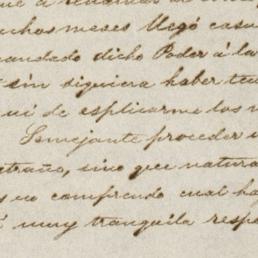 muchos meses llegó casu
mandado dicho Poder á la
sin siquiera haber ten
uí de esplicarme los m
Semejante proceder
straño, sino que natura
no comprendo cual ha
muy tranquila resp